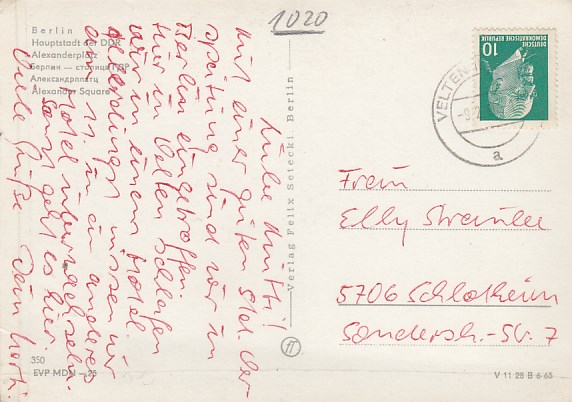 1020
Berlin
Hauptstadt der DDR
Alexanderplatz
Берлин — столица ГДР
Александрплатц
Alexander Square
DEUTSCHE
DEMOKRATISCHE REPUBLIK
10
VELTEN
a
Liebe Mutti!
Mit einer guten Std. Ver-
spätung sind wir in
Berlin eingetroffen.
Hier in Velten schlafen
wir in einem Hotel
Allerdings müssen wir
am 11. in ein anderes
Hotel überwechseln.
Sonst geht es hier.
Viele Grüße Dein
Verlag Felix Setecki, Berlin
Frau
Elly
5706 Schlotheim
Sondersh.-Str. 7
350
EVP MDN —.25
V 11 28 B 6-65